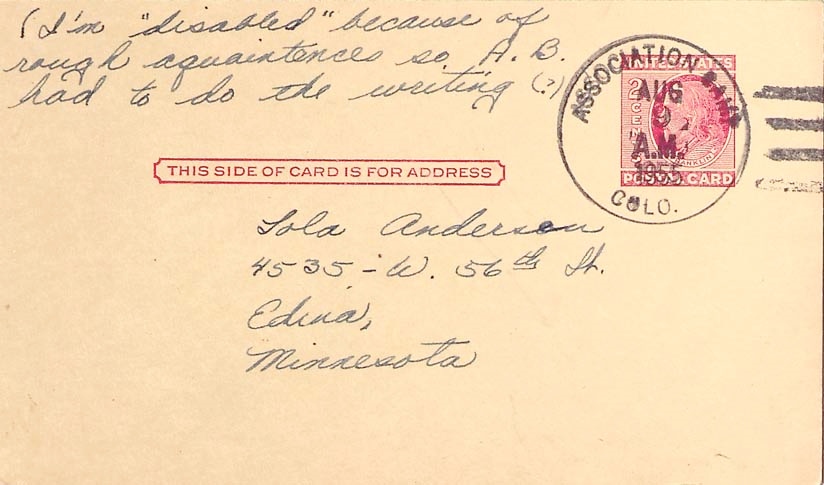 (I'm "disabled" because of
rough aquaintences so A.B.
had to do the writing (?)
ASSOCIATION CAMP
AUG
9
A.M.
1955
COLO.
UNITED STATES
2 CENTS
FRANKLIN
POSTAL CARD
THIS SIDE OF CARD IS FOR ADDRESS
Lola Anderson
4535 - W. 56th St.
Edina,
Minnesota